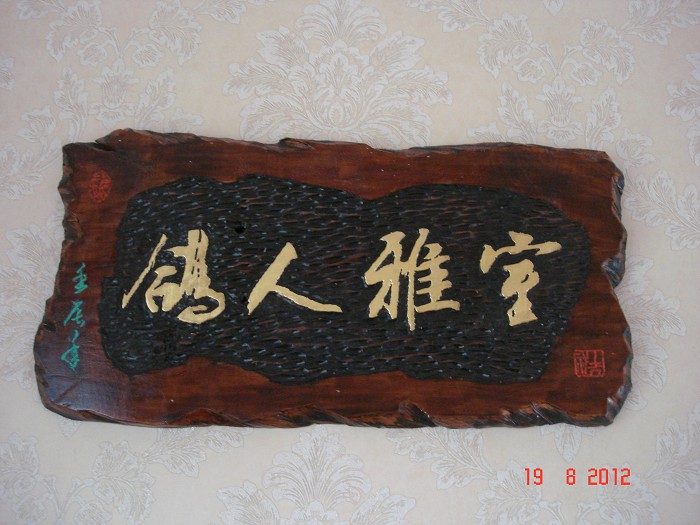 鸽人雅室
壬辰
19 8 2012